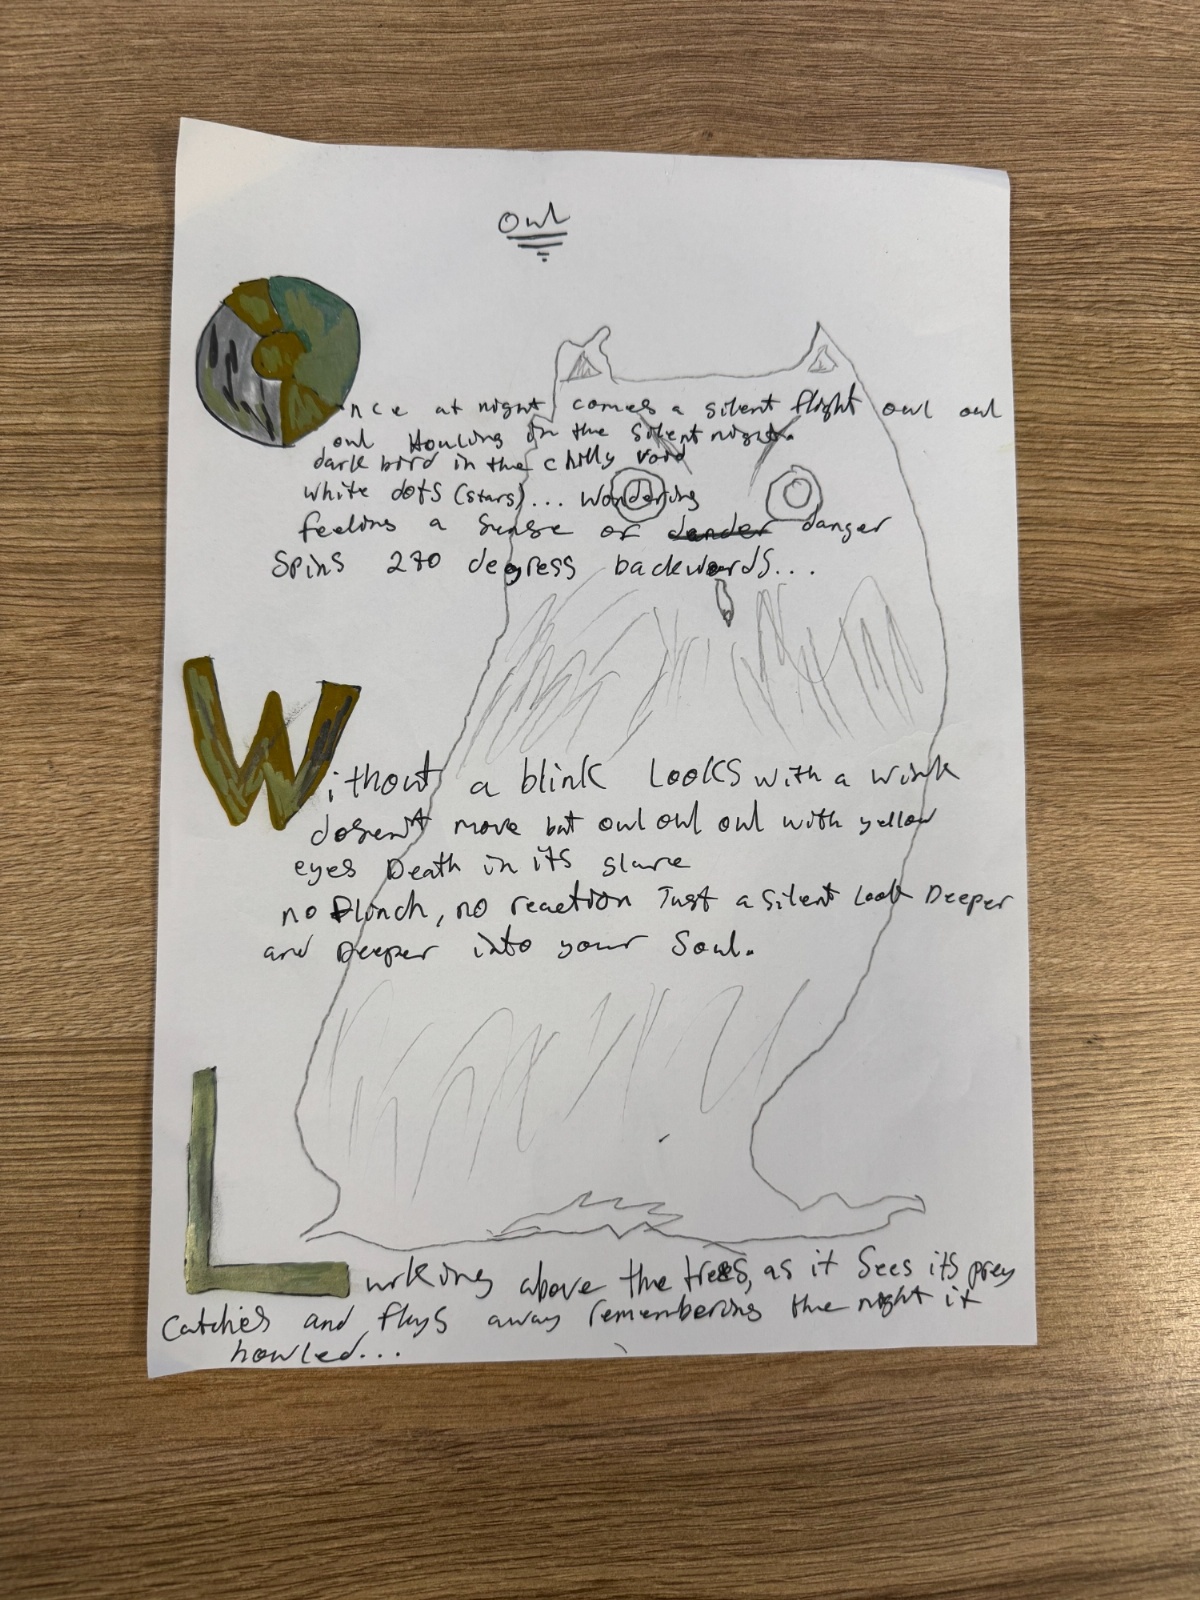 Owl
Once at night comes a silent flight owl owl
owl Houling in the silent night.
dark bird in the chilly void
white dots (stars)... Wondering
feeling a sense of dander danger
Spins 270 degress backwards...
Without a blink Looks with a wink
doesen't move but owl owl owl with yellow
eyes Death in its glare
no Flinch, no reaction Just a silent look Deeper
and Deeper into your Soul.
Lurking above the trees, as it sees its prey
Catches and flays away remembering the night it
howled...